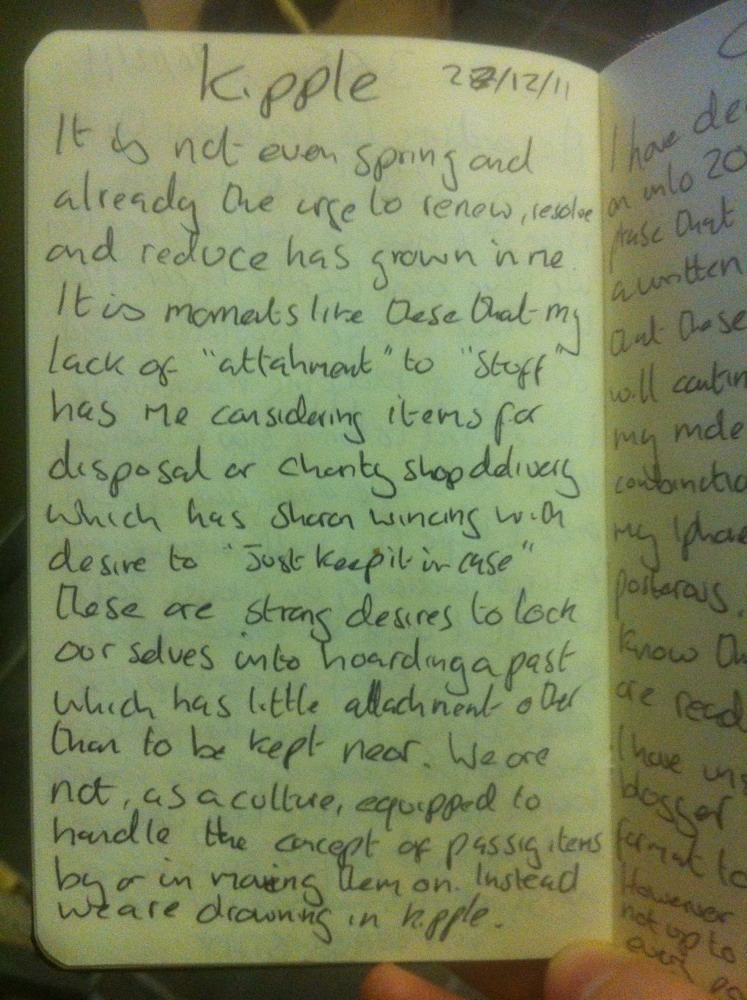 Kipple 27/12/11
It is not even spring and
already the urge to renew, resolve
and reduce has grown in me.
It is moments like these that my
lack of "attahment" to "Stuff"
has me considering items for
disposal or charity shop delivery
which has Sharon wincing with
desire to "Just keep it in case"
these are strong desires to lock
our selves into hoarding a past
which has little attachment other
than to be kept near. We are
not, as a culture, equipped to
handle the concept of passig items
by or in moving them on. Instead
we are drowning in kipple.
I have de
on into 20
that
a written
that these
will contin
my mde
combinatio
my iphone
posterous.
know th
are read
I have
blogger
format to
However
not up to